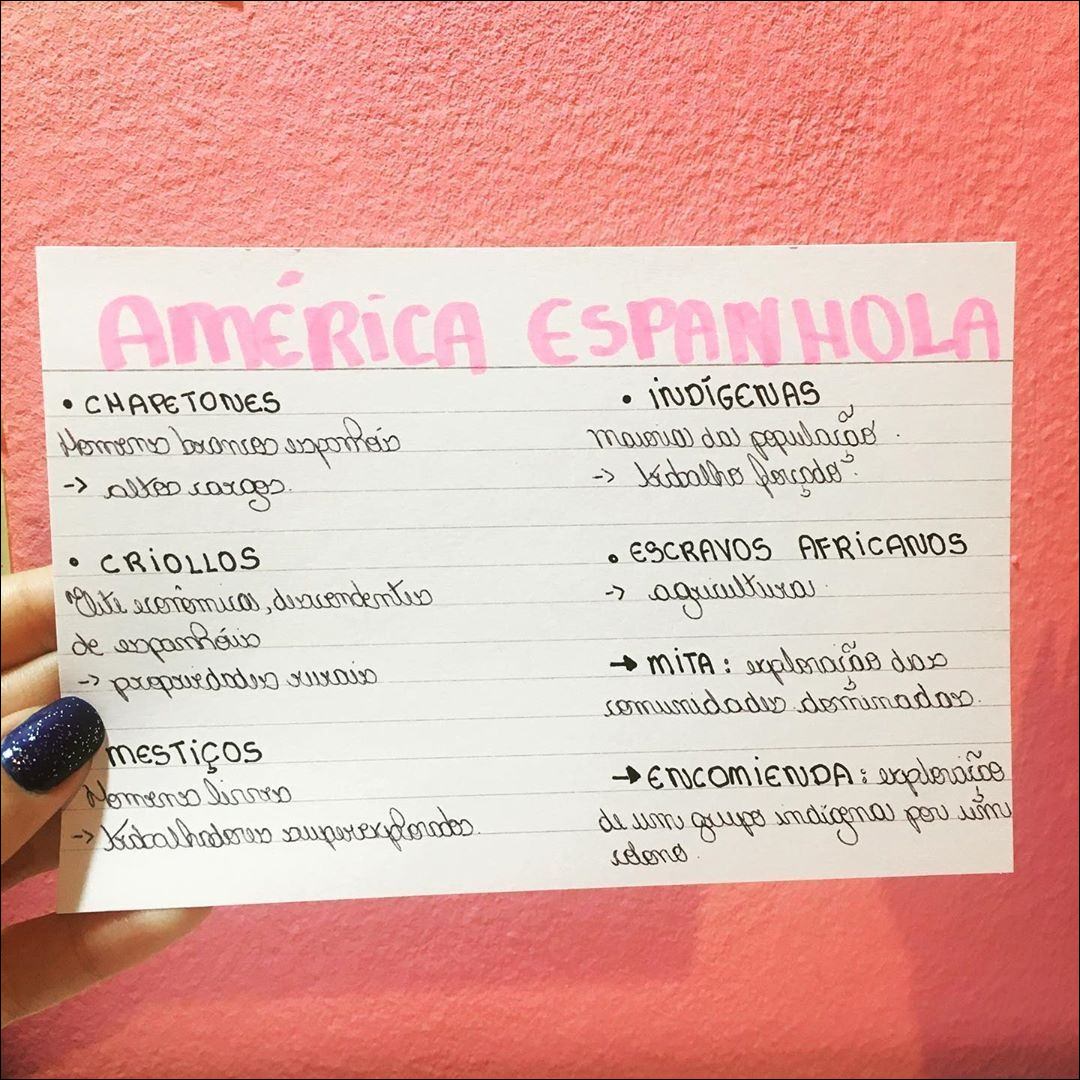 AMÉRICA ESPANHOLA
• CHAPETONES
Homens brancos espanhóis
-> altos cargos.
• CRIOLLOS
Elite econômica, descendentes
de espanhóis
-> propriedades rurais
MESTIÇOS
Homens livres
-> trabalhadores superexplorados.
• INDÍGENAS
maioria da população.
-> trabalho forçado.
• ESCRAVOS AFRICANOS
-> agricultura.
-> MITA: exploração das
comunidades dominadas.
-> ENCOMIENDA: exploração
de um grupo indígena por um
colono.